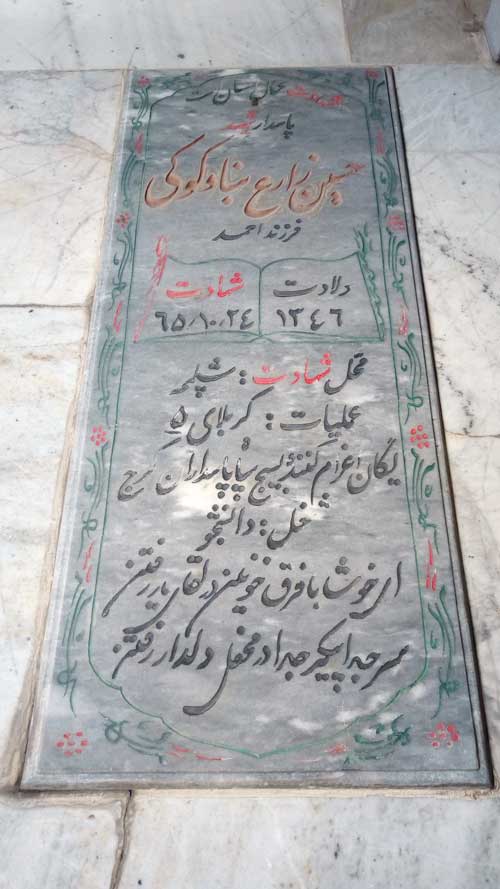 پاسدار شهید
حسین زارع بناوکوکی
فرزند احمد
ولادت شهادت
۱۳۴۶ ۶۵/۱۰/۲۴
محل شهادت: شلمچه
عملیات: کربلای ۵
یگان اعزام کننده بسیج سپاه پاسداران کرج
شغل: دانشجو
ای خوشا با فرق خونین در لقای یار رفتن
سر جدا پیکر جدا در محفل دلدار رفتن